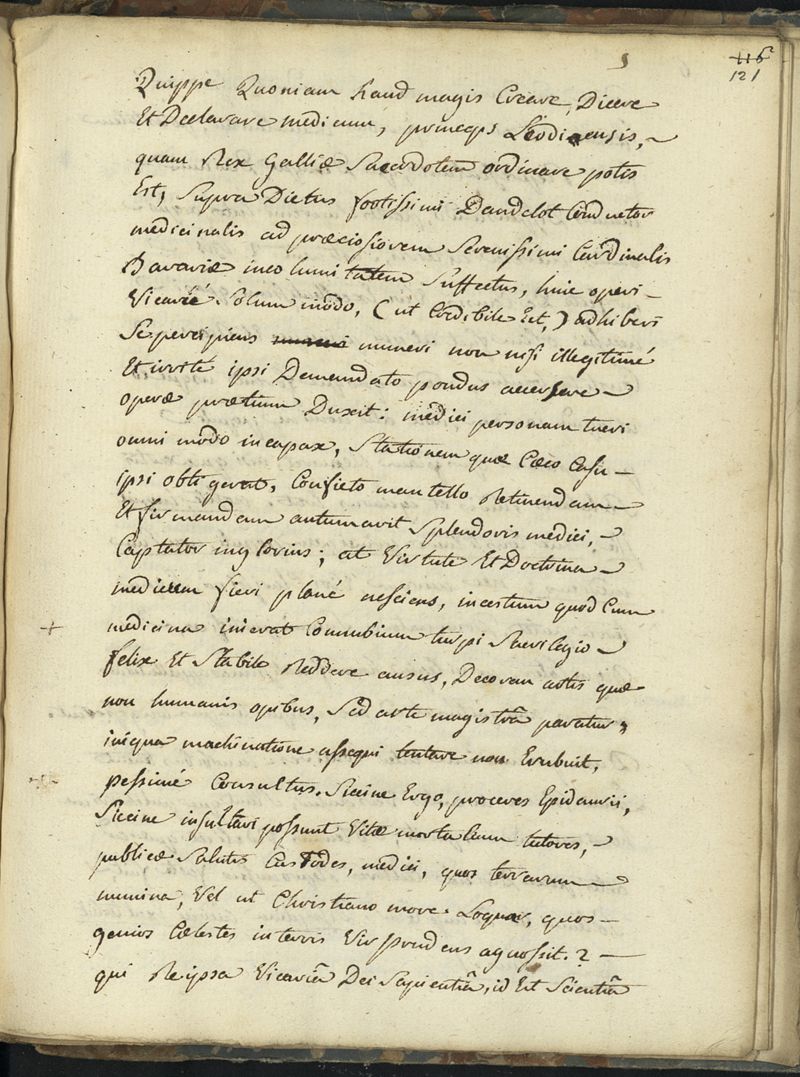 5
116
121
Quippe Quoniam haud magis Creare, Dicere
Et Declarare medicum, princeps Leodiensis,
quam Rex Galliæ Sacerdotem ordinare potis
Est, Supra Dictus fortissimi Dandelot Conductor
medicinalis ad præciosiorem Serenissimi Cardinalis
Bavariæ incolumitatem Suffectus, huic operi
Vicarié Solum modo, (ut Credibile Est,) adhiberi
Se percipiens muneri non nisi illegitimé
Et irrité ipsi Demandato pondus accersere
operæ prætium Duxit: medici personam tueri
omni modo incapax, Stationem quæ Cæco Casu
ipsi obtigerat, Conficto mantello Retinendam
Et firmandam autumavit Splendoris medici,
Captator inglorius; at Virtute Et Doctrina
medicum fieri plané nesciens, incestum quod Cum
+ medicina inierat Connubium turpi Sacrilegio
felix Et Stabile Reddere ausus, Decorem artis quæ
non humanis opibus, Sed arte magistrâ paratur,
iniqua machinatione assequi tentare non Erubuit,
pessimé Consultus. Siccine Ergo, proceres Epidaurii,
Siccine insultari possunt Vitæ mortalium tutores,
publicæ Salutis Custodes, medici, quos terrarum
numina, Vel ut Christiano more Loquar, quos
genios Cælestes in terris Vir prudens agnossit.?
qui Re ipsa Vicariâ Dei Sapientiâ, id Est Scientiâ